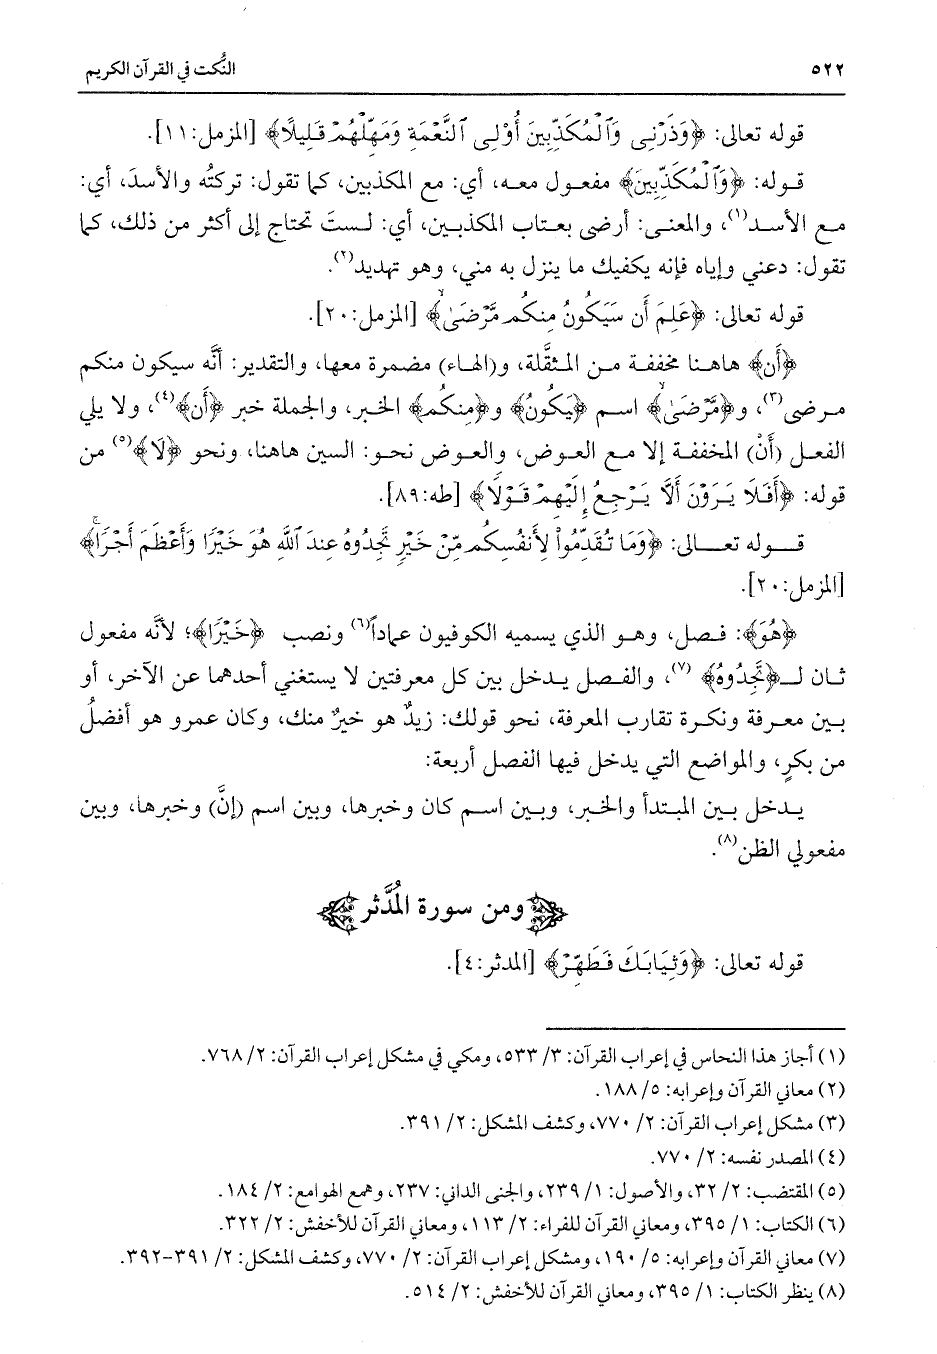 ٥٢٢ النُّكت في القرآن الكريم
قوله تعالى: ﴿وَذَرْنِي وَٱلْمُكَذِّبِينَ أُوْلِي ٱلنَّعْمَةِ وَمَهِّلْهُمْ قَلِيلًا﴾ [المزمل:١١].
قـوله: ﴿وَٱلْمُكَذِّبِينَ﴾ مفعـول معـه، أي: مع المكذبين، كما تقول: تركتُه والأسدَ، أي:
مع الأسـد(١)، والمعنـى: أرضى بعـتاب المكذبـين، أي: لـستَ تحتاج إلى أكثر من ذلك، كما
تقول: دعني وإياه فإنه يكفيك ما ينزل به مني، وهو تهديد(٢).
قوله تعالى: ﴿عَلِمَ أَن سَيَكُونُ مِنكُم مَّرْضَىٰ﴾ [المزمل:٢٠].
﴿أَن﴾ هاهـنا مخففـة مـن المـثقَّلة، و(الهـاء) مضـمرة معهـا، والتقدير: أنَّه سيكون منكم
مـرضى(٣)، و﴿مَّرْضَىٰ﴾ اسـم ﴿يَكُونُ﴾ و﴿مِنكُم﴾ الخـبر، والجملة خبر ﴿أَن﴾(٤)، ولا يلي
الفعـل (أَنْ) المخففـة إلا مـع العـوض، والعـوض نحـو: السين هاهنا، ونحو ﴿لَا﴾(٥) من
قوله: ﴿أَفَلَا يَرَوْنَ أَلَّا يَرْجِعُ إِلَيْهِمْ قَوْلًا﴾ [طه:٨٩].
قـــوله تعـــالى: ﴿وَمَا تُقَدِّمُواْ لِأَنفُسِكُم مِّنْ خَيْرٍ تَجِدُوهُ عِندَ ٱللَّهِ هُوَ خَيْرًا وَأَعْظَمَ أَجْرًا﴾
[المزمل:٢٠].
﴿هُوَ﴾: فـصل، وهـو الذي يسميه الكوفيون عماداً(٦) ونصب ﴿خَيْرًا﴾؛ لأنَّه مفعول
ثـان لـ﴿تَجِدُوهُ﴾ (٧)، والفـصل يـدخل بين كل معرفتين لا يستغني أحدهما عن الآخر، أو
بـين معـرفة ونكـرة تقارب المعرفة، نحو قولك: زيدٌ هو خيرٌ منك، وكان عمرو هو أفضلُ
من بكرٍ، والمواضع التي يدخل فيها الفصل أربعة:
يـدخل بـين المبـتدأ والخـبر، وبـين اسـم كان وخبرها، وبين اسم (إنَّ) وخبرها، وبين
مفعولي الظن(٨).
ومن سورة المُدَّثر
قوله تعالى: ﴿وَثِيَابَكَ فَطَهِّرْ﴾ [المدثر:٤].
(١) أجاز هذا النحاس في إعراب القرآن: ٣/ ٥٣٣، ومكي في مشكل إعراب القرآن: ٢/ ٧٦٨.
(٢) معاني القرآن وإعرابه: ٥/ ١٨٨.
(٣) مشكل إعراب القرآن: ٢/ ٧٧٠، وكشف المشكل: ٢/ ٣٩١.
(٤) المصدر نفسه: ٢/ ٧٧٠.
(٥) المقتضب: ٢/ ٣٢، والأصول: ١/ ٢٣٩، والجنى الداني: ٢٣٧، وهمع الهوامع: ٢/ ١٨٤.
(٦) الكتاب: ١/ ٣٩٥، ومعاني القرآن للفراء: ٢/ ١١٣، ومعاني القرآن للأخفش: ٢/ ٣٢٢.
(٧) معاني القرآن وإعرابه: ٥/ ١٩٠، ومشكل إعراب القرآن: ٢/ ٧٧٠، وكشف المشكل: ٢/ ٣٩١-٣٩٢.
(٨) ينظر الكتاب: ١/ ٣٩٥، ومعاني القرآن للأخفش: ٢/ ٥١٤.